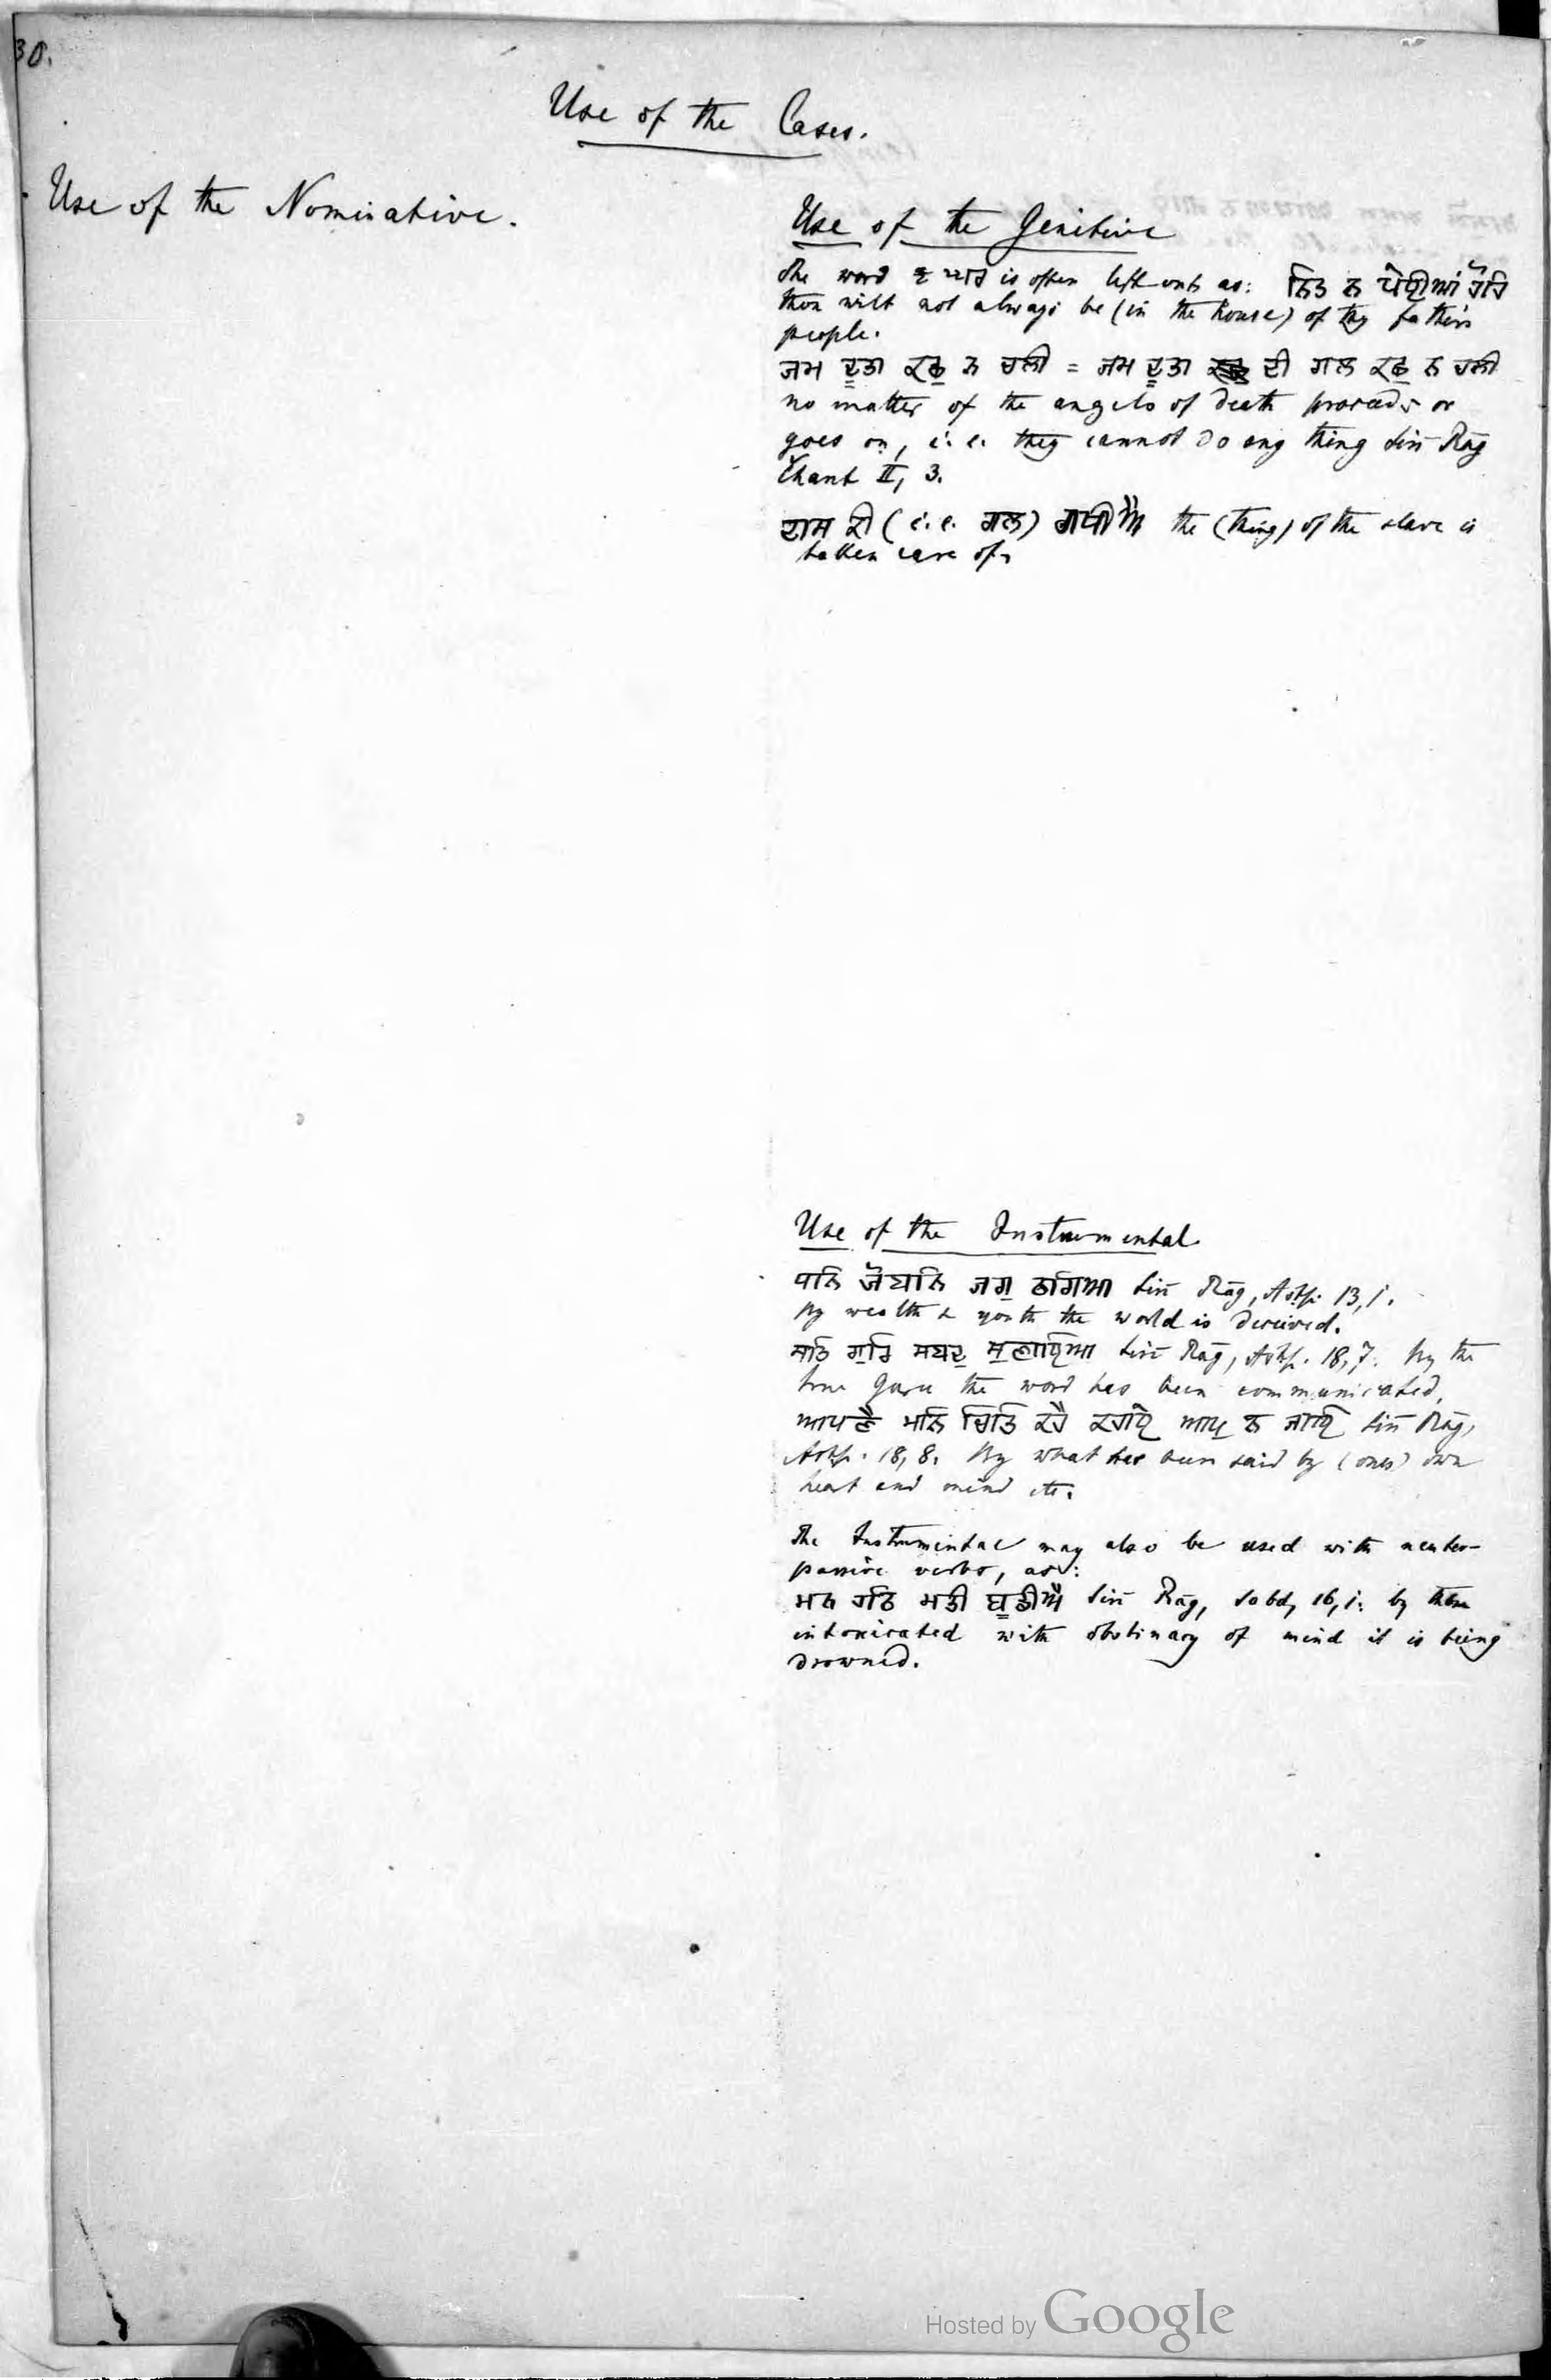 30.
Use of the Cases.
Use of the Nominative.
Use of the Genitive
The word ਘਰ is often left out, as: ਨਿਤ ਨ ਪੇਈਅਾਂ ਹੋਹਿ
thou wilt not always be (in the house) of thy father's
people.
ਜਮ ਦੂਤਾ ਕਛੁ ਨ ਚਲੀ = ਜਮ ਦੂਤਾ ਦੀ ਗਲ ਕਛੁ ਨ ਚਲੀ
no matter of the angels of death proceeds or
goes on, i.e. they cannot do any thing Siri Rāg
Čhant II, 3.
ਦਾਸ ਕੀ (i.e. ਗਲ) the (thing) of the slave is
taken care of.
Use of the Instrumental
ਧਨਿ ਜੋਬਨਿ ਜਗੁ ਠਗਿਆ Siri Rāg, Astp. 13,1.
By wealth & youth the world is deceived.
ਸਤਿ ਗੁਰਿ ਸਬਦੁ ਸੁਣਾਇਆ Siri Rāg, Astp. 18,7. By the
true Guru the word has been communicated.
ਆਪਣੈ ਮਨਿ ਚਿਤਿ ਕਹੈ ਕਹਾਏ ਆਪੁ ਨ ਜਾਇ Siri Rāg,
Astp. 18, 8. By what has been said by (ones) own
heart and mind etc.
The Instrumental may also be used with neuter-
passive verbs, as:
ਮਨ ਹਠਿ ਮਤੀ ਬੂਡੀਐ Siri Rāg, Sabd, 16,1. by
intoxicated with obstinacy of mind it is being
drowned.
Hosted by Google